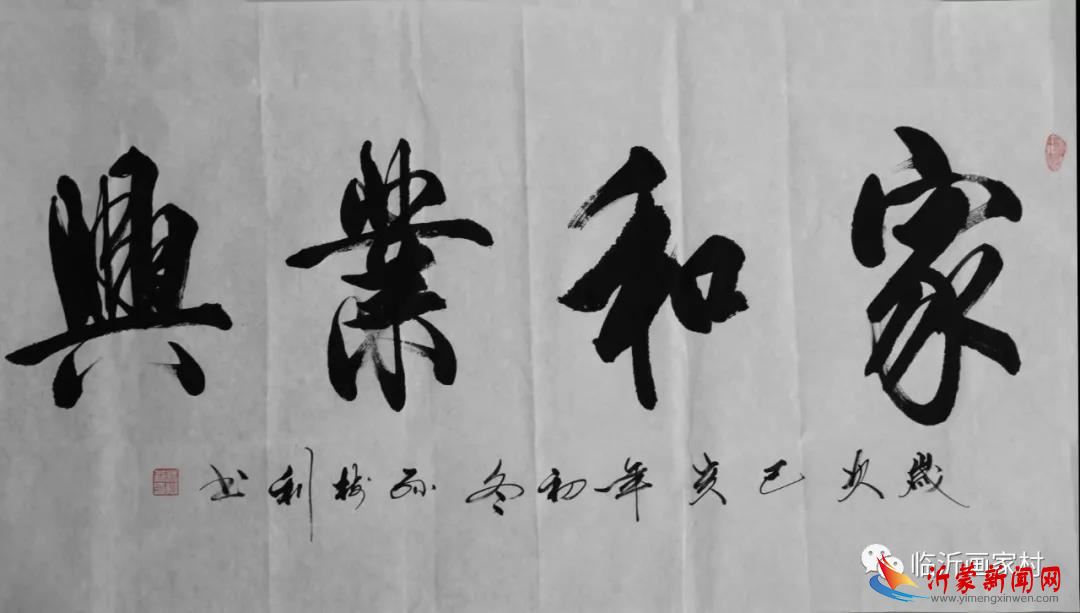 家和業興
歲次己亥年初冬孙樹利书
临沂画家村
沂蒙新闻网
www.yimengxinwen.com